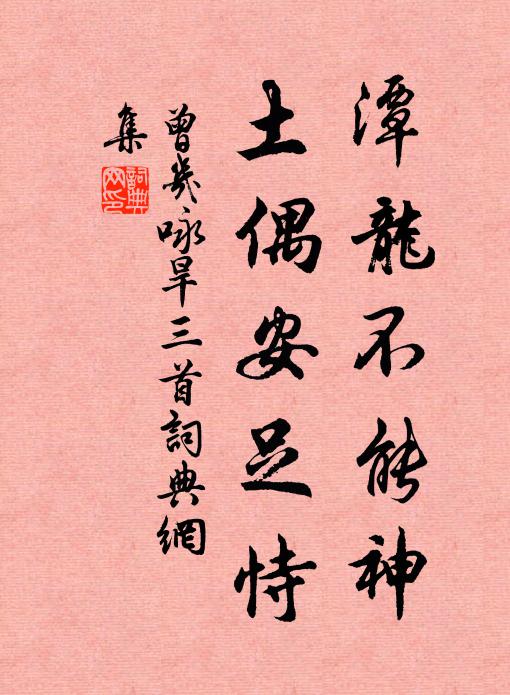 潭龍不能神
土偶安足恃
曾幾咏旱三首詞典網
集
詞典
网印